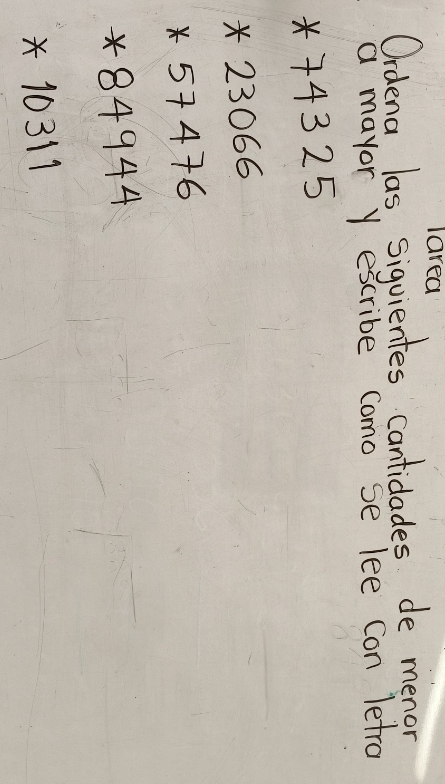 Tarea
Ordena las siguientes cantidades de menor
a mayor y escribe como se lee con letra
* 74325
* 23066
* 57476
* 84944
* 10311